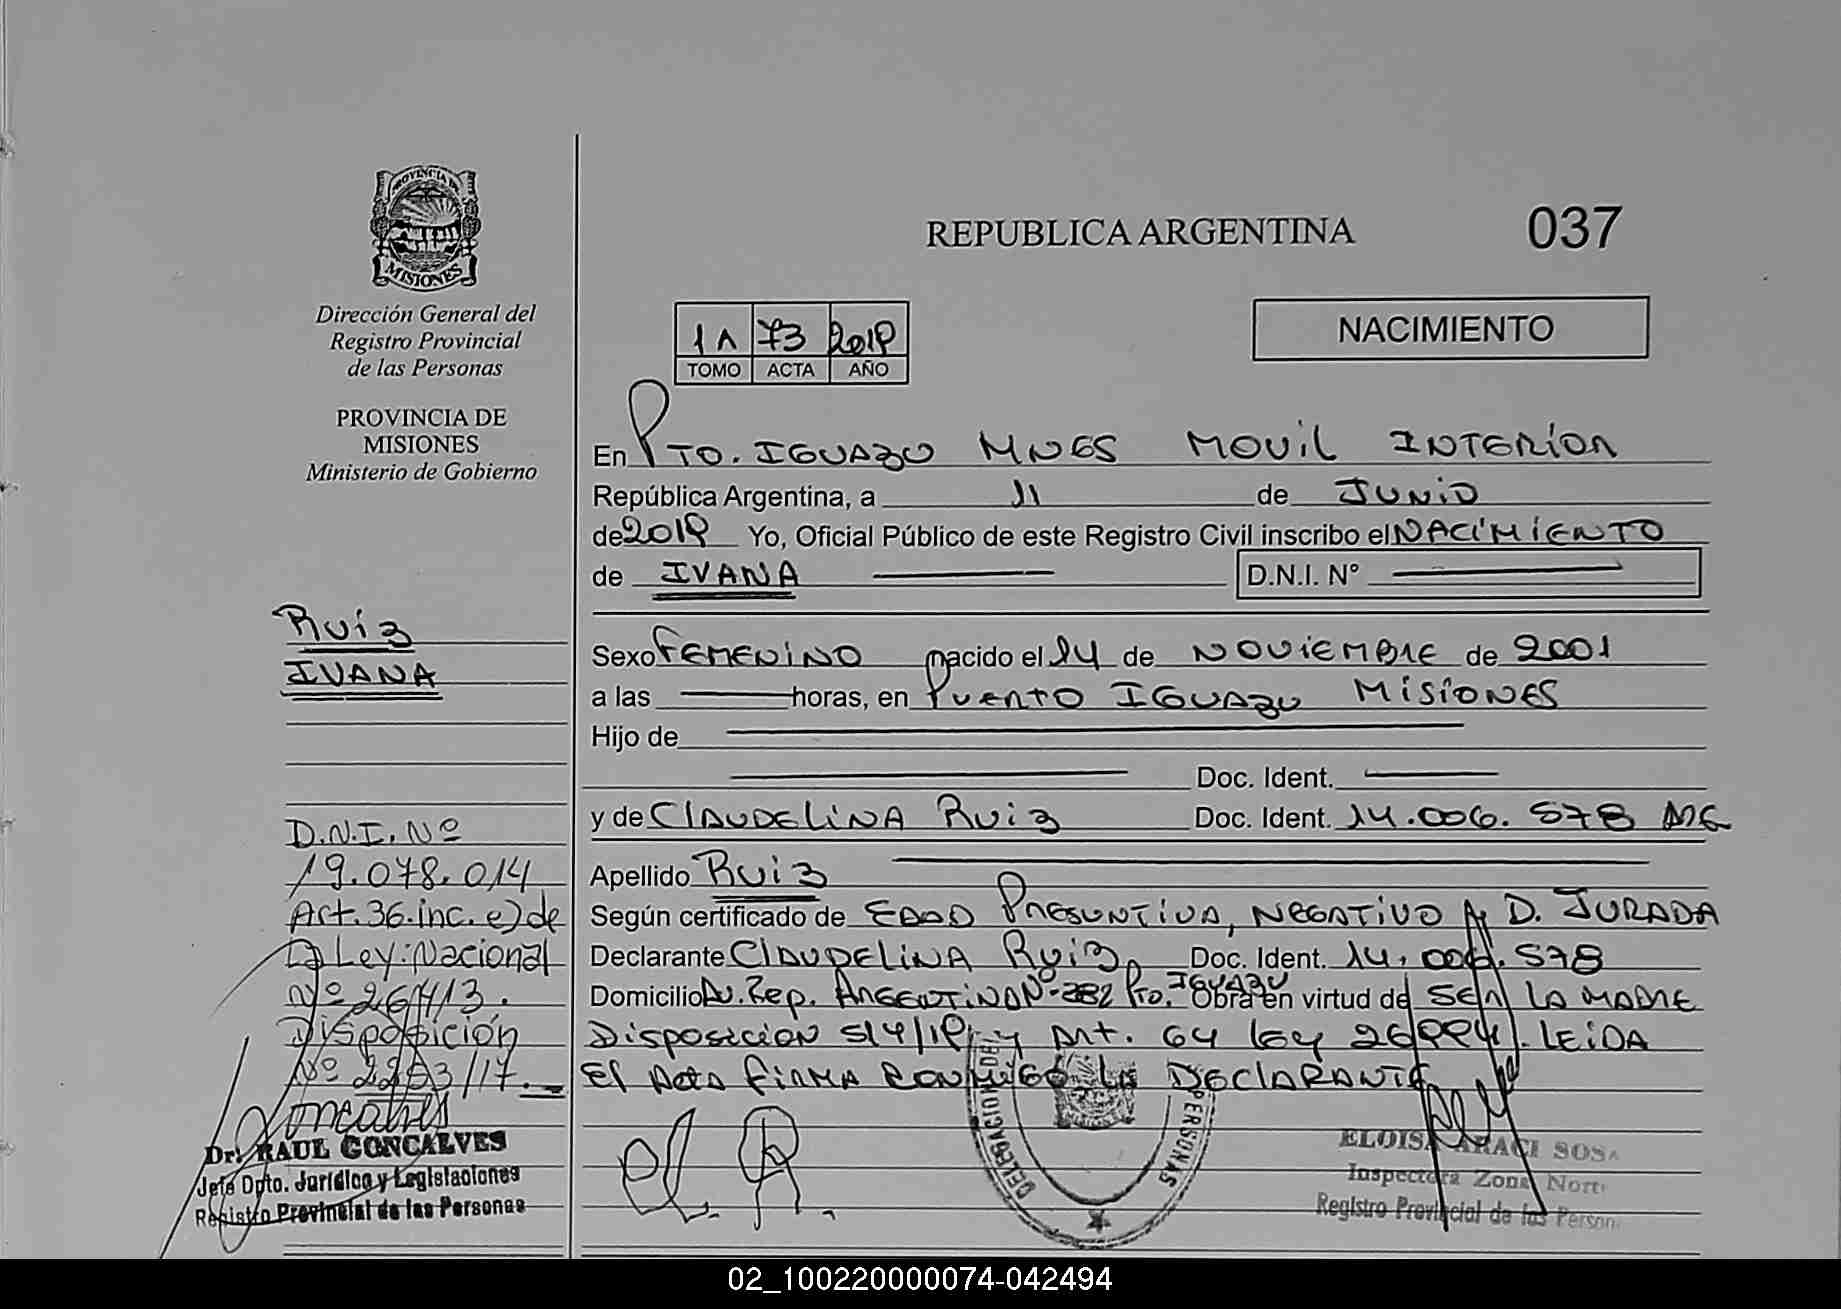 PROVINCIA DE
MISIONES
Dirección General del
Registro Provincial
de las Personas
PROVINCIA DE
MISIONES
Ministerio de Gobierno
Ruiz
IVANA
D.N.I. Nº
19.078.014
Art. 36.inc. e) de
La Ley: Nacional
Nº 26413.
Disposición
Nº 2253/17.
Dr. RAUL GONCALVES
Jefe Dpto. Jurídico y Legislaciones
Registro Provincial de las Personas
REPUBLICA ARGENTINA 037
1A 73 2019
TOMO ACTA AÑO
NACIMIENTO
En PTO. IGUAZU MNES MOVIL INTERIOR
República Argentina, a 11 de JUNIO
de 2019 Yo, Oficial Público de este Registro Civil inscribo el NACIMIENTO
de IVANA D.N.I. N°
Sexo FEMENINO nacido el 14 de NOVIEMBRE de 2001
a las horas, en PUERTO IGUAZU MISIONES
Hijo de
Doc. Ident.
y de CLAUDELINA Ruiz Doc. Ident. 14.006.578 ARG
Apellido Ruiz
Según certificado de EDAD PRESUNTIVA, NEGATIVO y D. JURADA
Declarante CLAUDELINA Ruiz Doc. Ident. 14.006.578
Domicilio Av. Rep. ARGENTINA Nº 282 Pto. IGUAZU Obra en virtud de SER LA MADRE
Disposición 514/19 y Art. 64 Ley 26994. LEIDA
El Acta FIRMA CONMIGO LA DECLARANTE
DELEGACION DEL PERSONAS
ELOISA ARACI SOSA
Inspectora Zona Norte
Registro Provincial de las Person
02_100220000074-042494